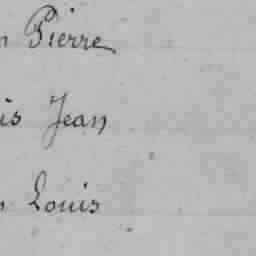 n Pierre
is Jean
n Louis